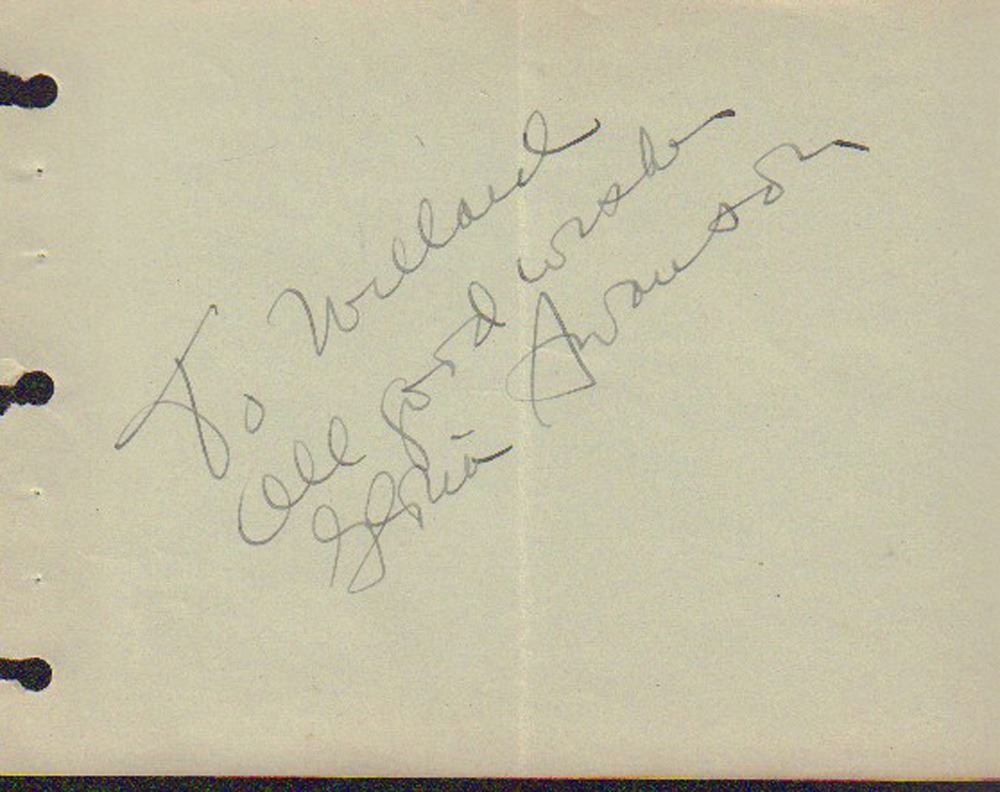 To Willard
All good wishes
Gloria Swanson